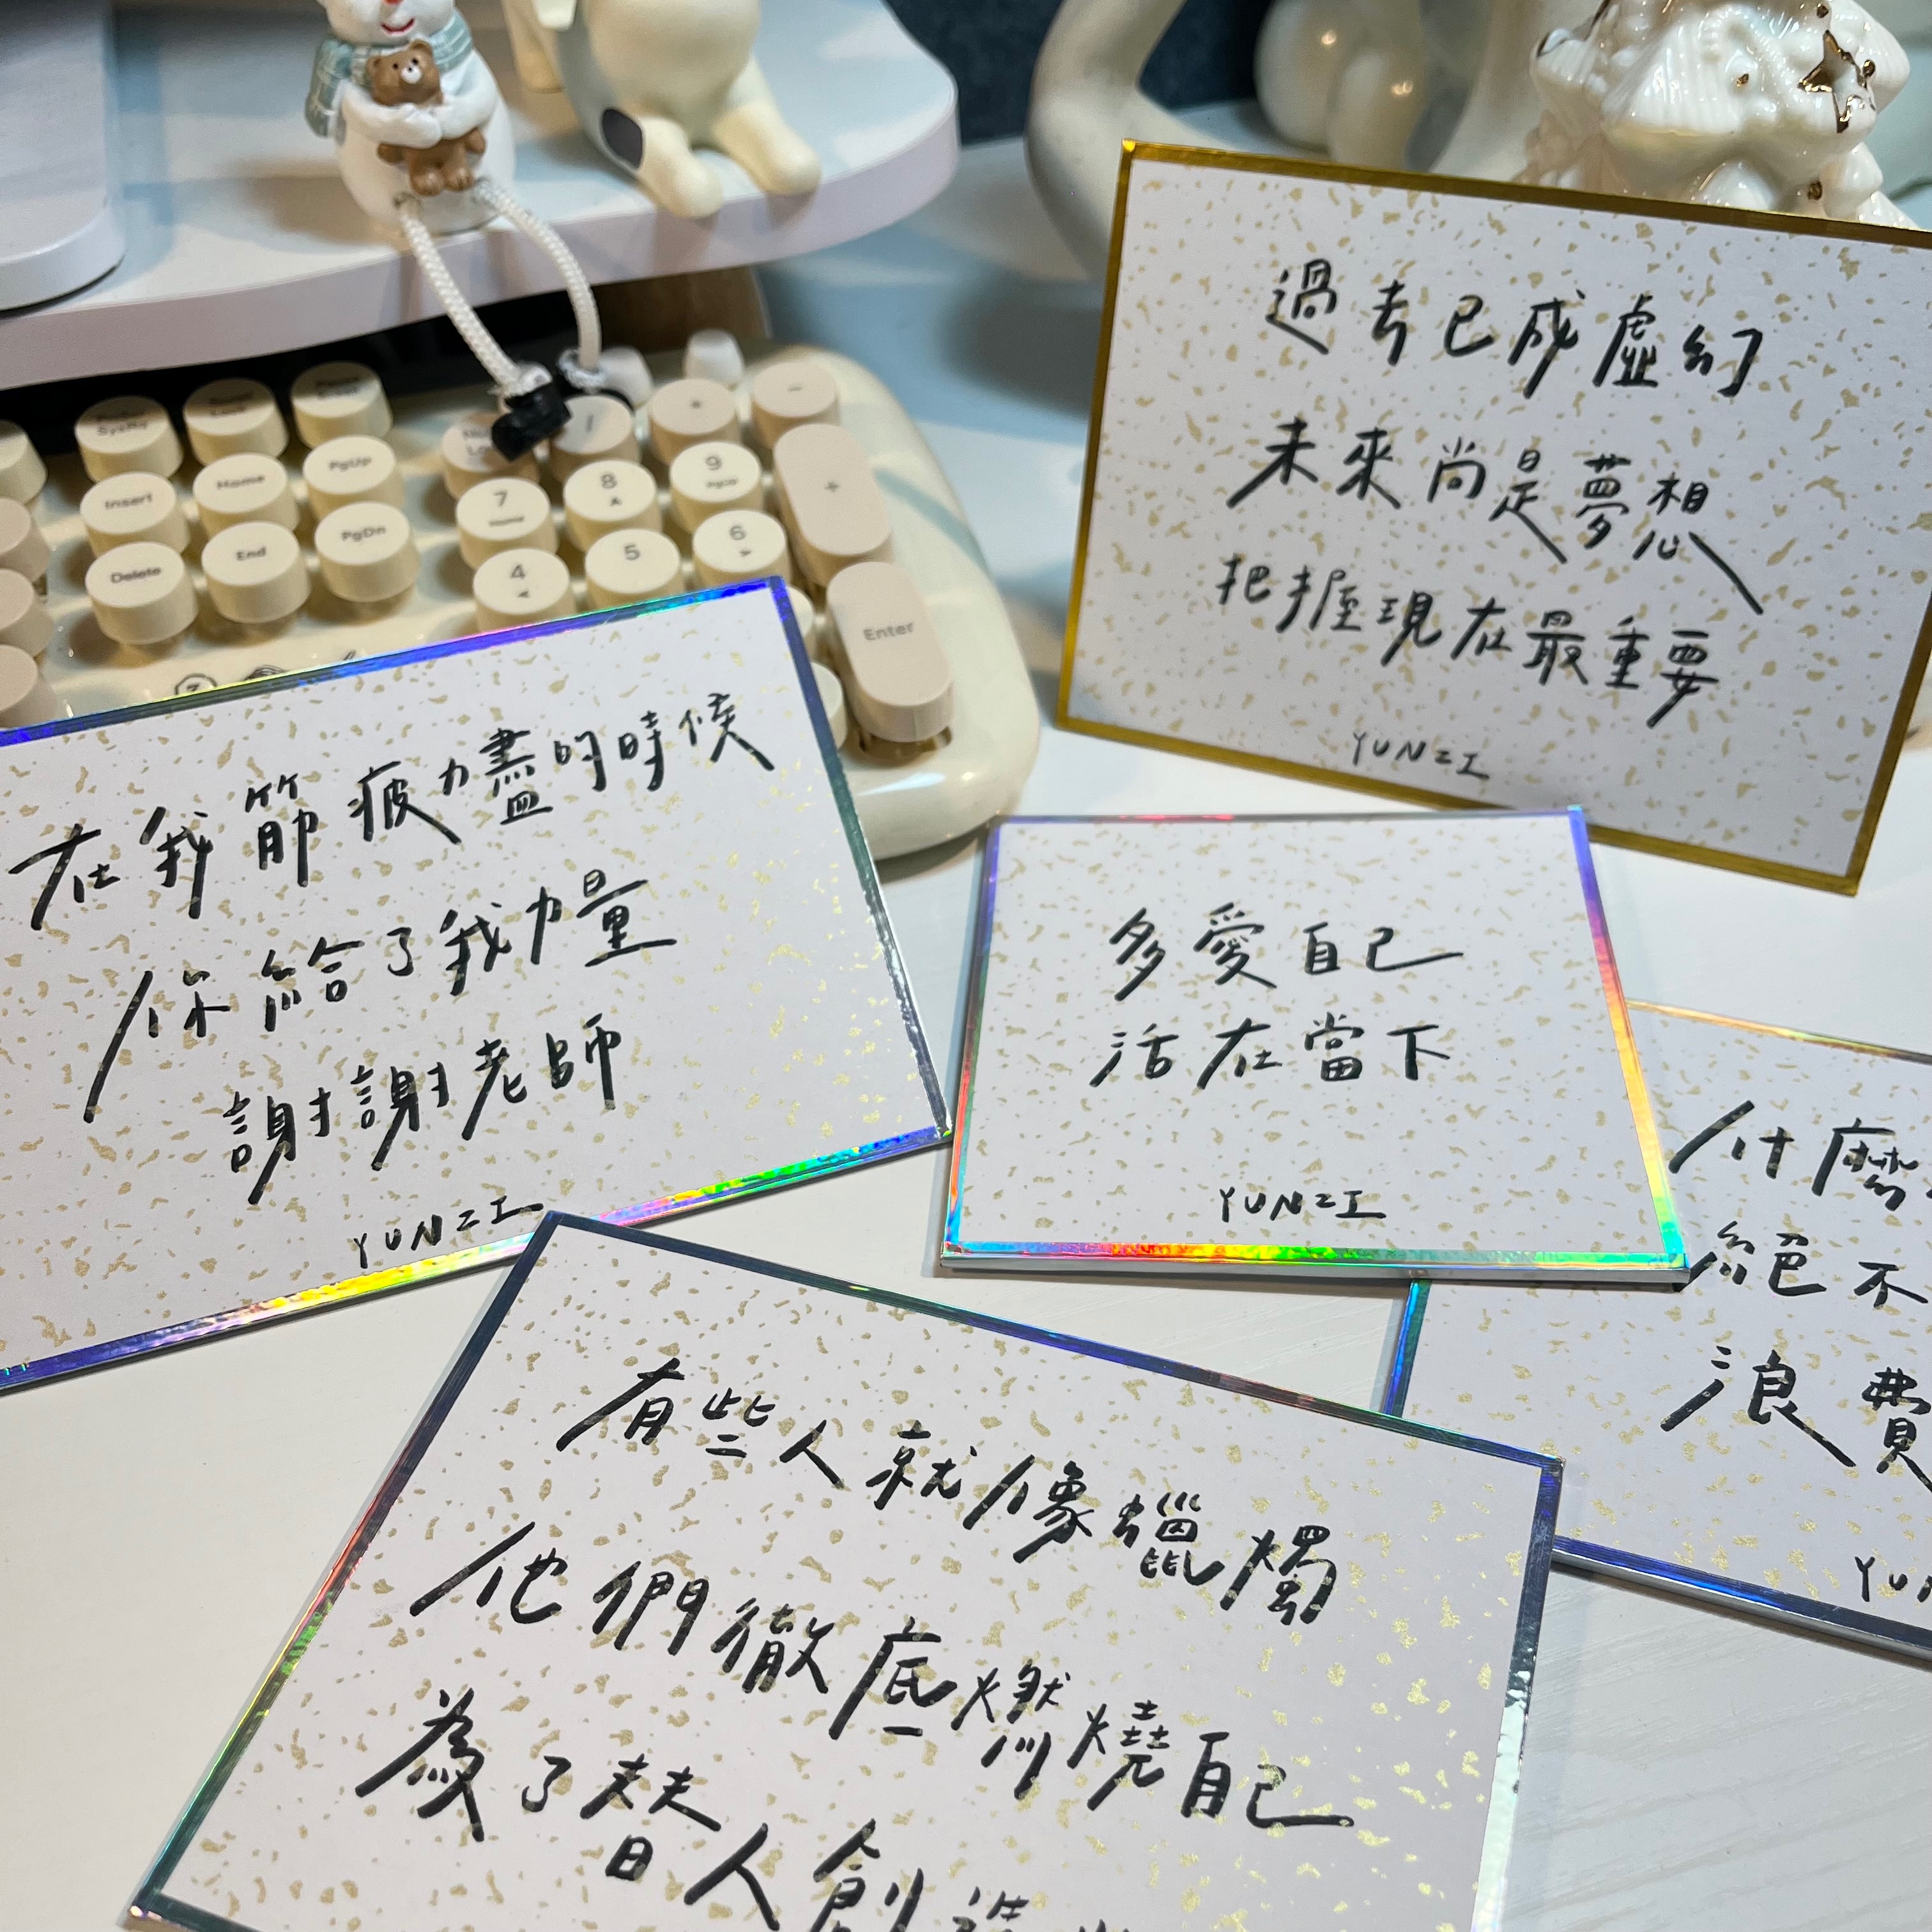 過去已成虛幻
未來尚是夢想
把握現在最重要
YUNZI
在我筋疲力盡的時候
你給了我力量
謝謝老師
YUNZI
多愛自己
活在當下
YUNZI
什麼
絕不
浪費
YUN
有些人就像蠟燭
他們徹底燃燒自己
為了替人創造
Insert
Home
PgUp
Delete
End
PgDn
7
Home
8
9
PgUp
+
4
5
6
Enter